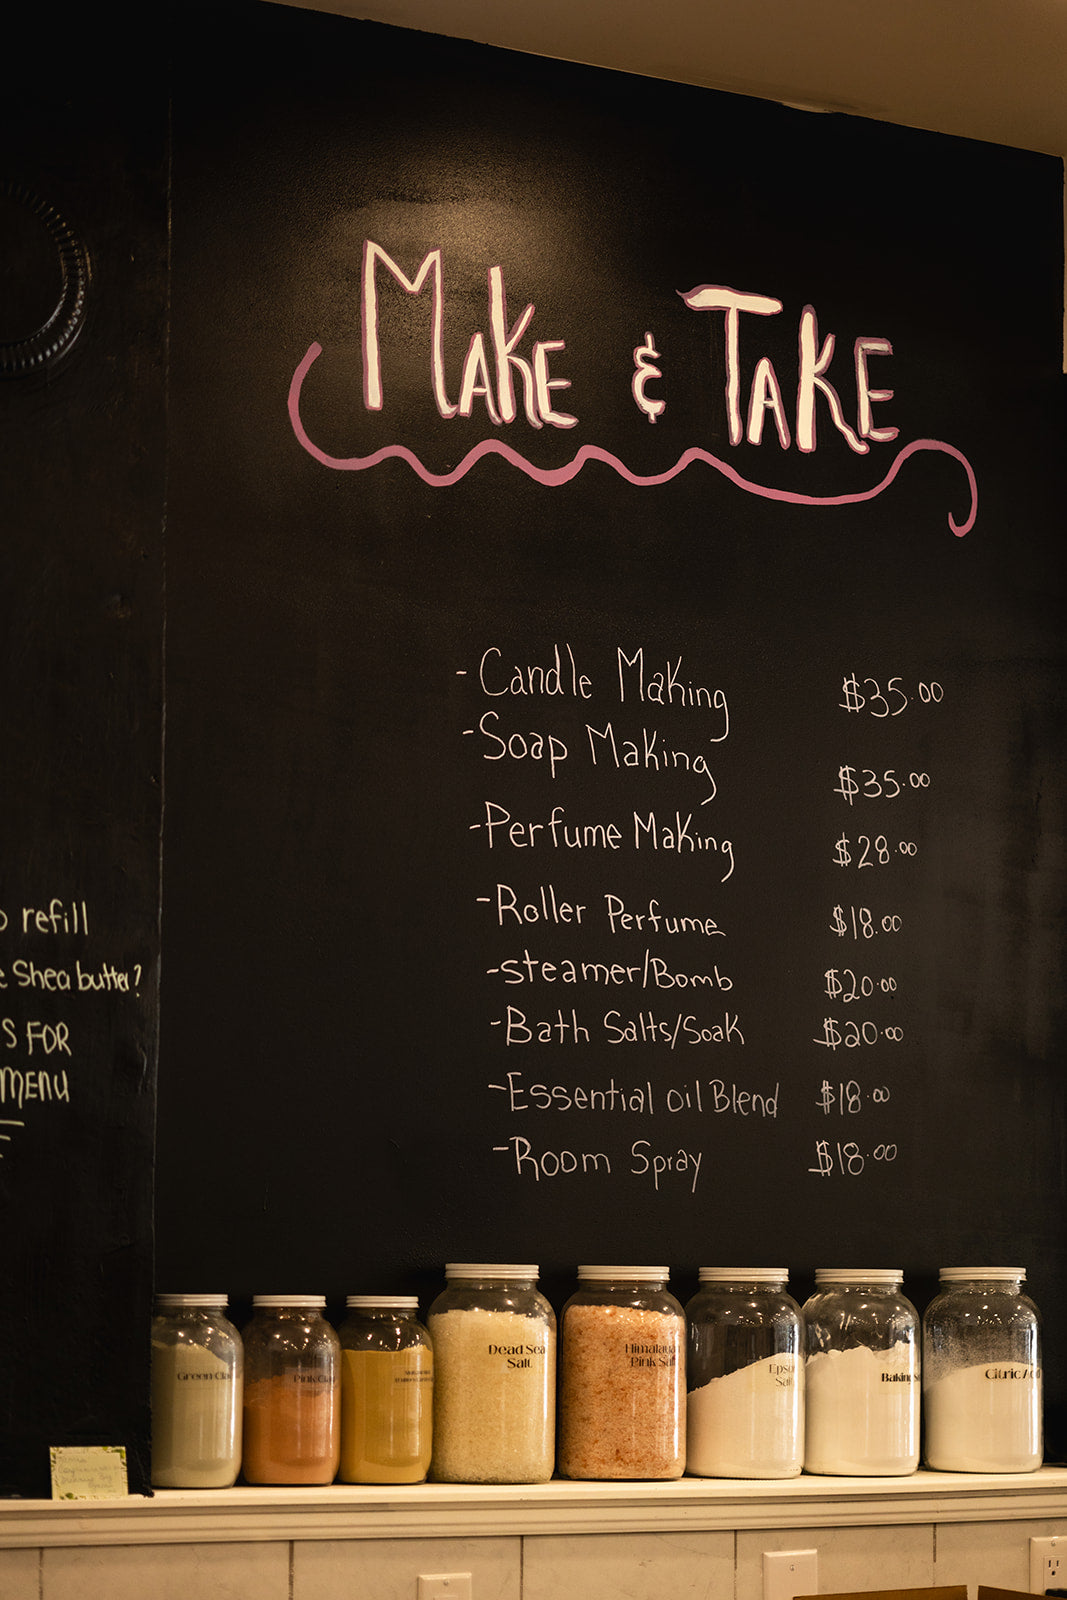 MAKE & TAKE
-Candle Making $35.00
-Soap Making $35.00
-Perfume Making $28.00
-Roller Perfume $18.00
-Steamer/Bomb $20.00
-Bath Salts/Soak $20.00
-Essential oil Blend $18.00
-Room Spray $18.00
refill
Shea butter?
S FOR
MENU
Green Cla
Pink Clay
Dead Sea
Salt
Himalayan
Pink Salt
Epso
Salt
Baking S
Citric Aci